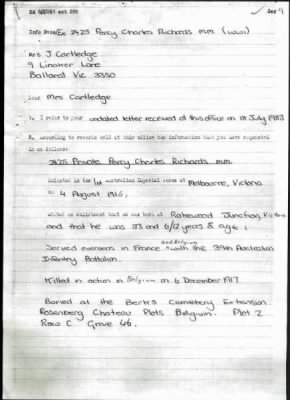 Info Desk/Ex 3425 Percy Charles Richards m.m (WWI)
Mrs J Cartledge
9 Linaker Lane
Ballarat Vic 3350
Dear Mrs Cartledge
1. I refer to your undated letter received at this office on 18 July 1983
2. According to records held at this office the information that you have requested
is as follows:
3425 Private Percy Charles Richards mm
Enlisted in the 1st Australian Imperial Force at Melbourne, Victoria
on 4 August 1916,
stated on enlistment that he was born at Rokewood Junction, Victoria
and that he was 33 and 6/12 years of age,
Served overseas in France and Belgium with the 39th Australian
Infantry Battalion.
Killed in action in Belgium on 6 December 1917
Buried at the Berks Cemetery Extension
Rosenberg Chateau Plots Belgium. Plot 2
Row C Grave 46.